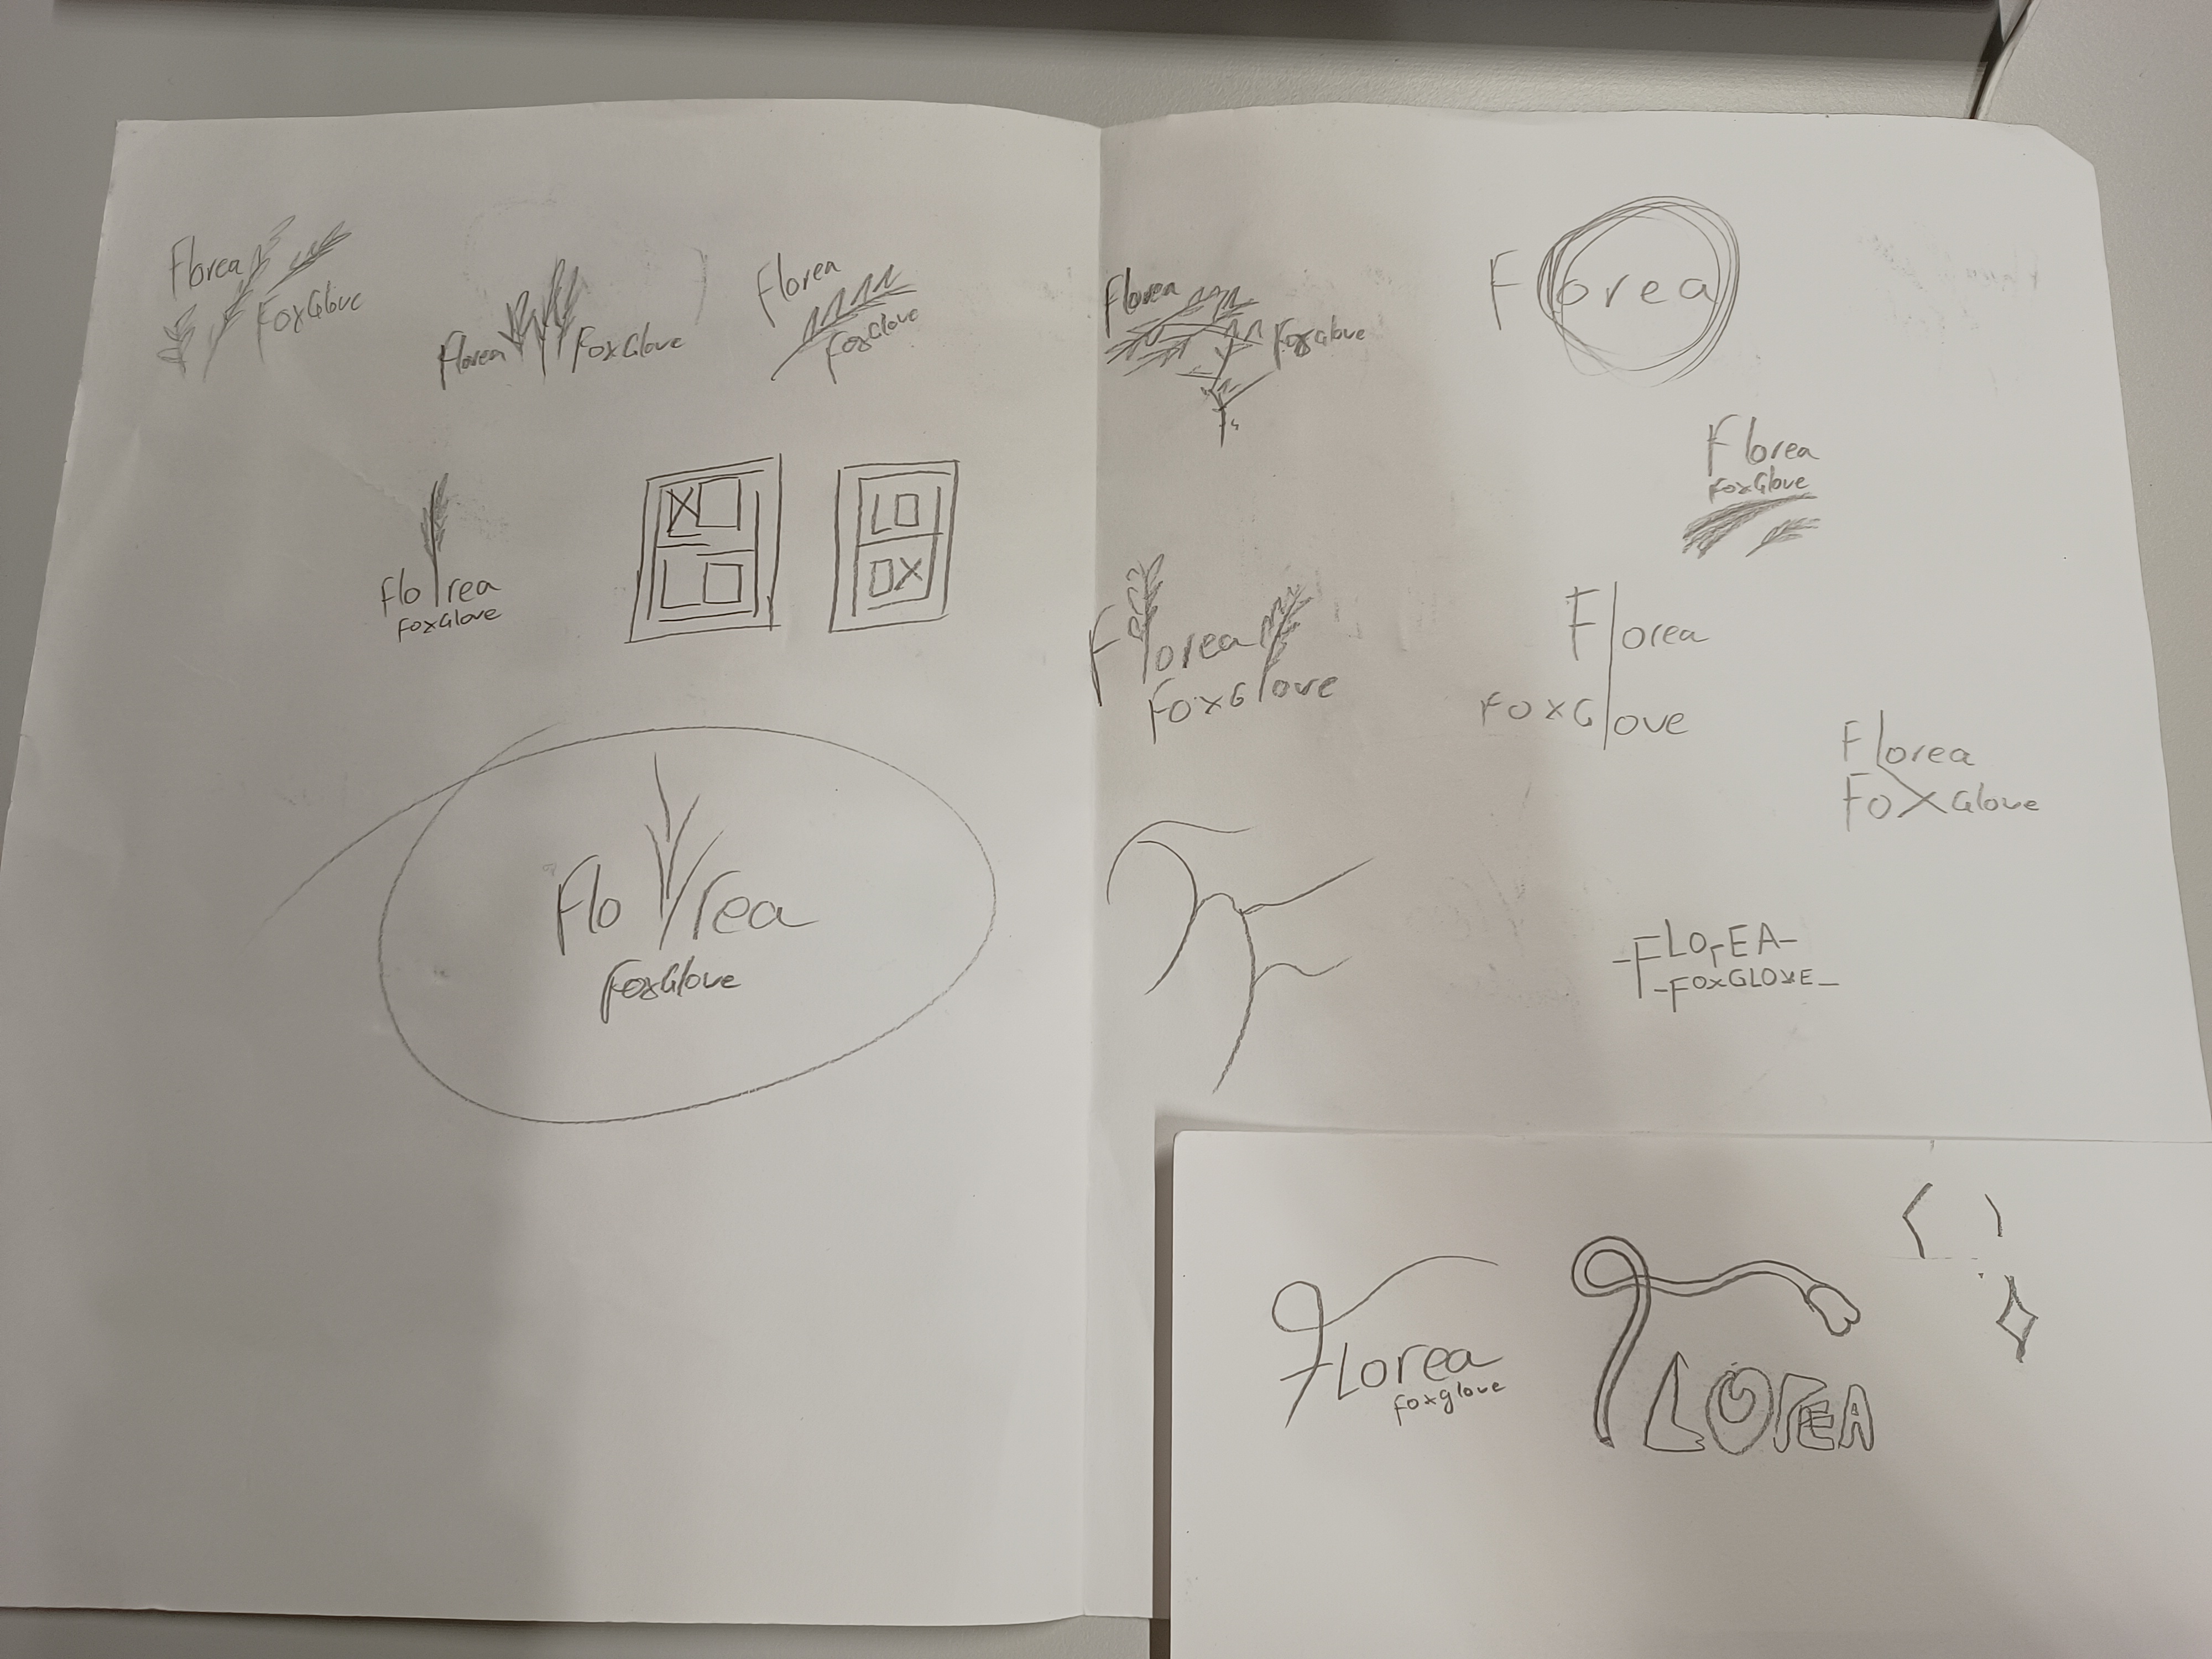 Florea
FoxGlove
Florea FoxGlove
Florea
FoxGlove
Flo rea
FoxGlove
Flo rea
FoxGlove
Florea
FoxGlove
Florea
Florea
FoxGlove
Florea
FoxGlove
Florea
FoxGlove
Florea
FoxGlove
-FLOrEA-
-FOXGLOVE-
FLorea
foxglove
FLOrEA